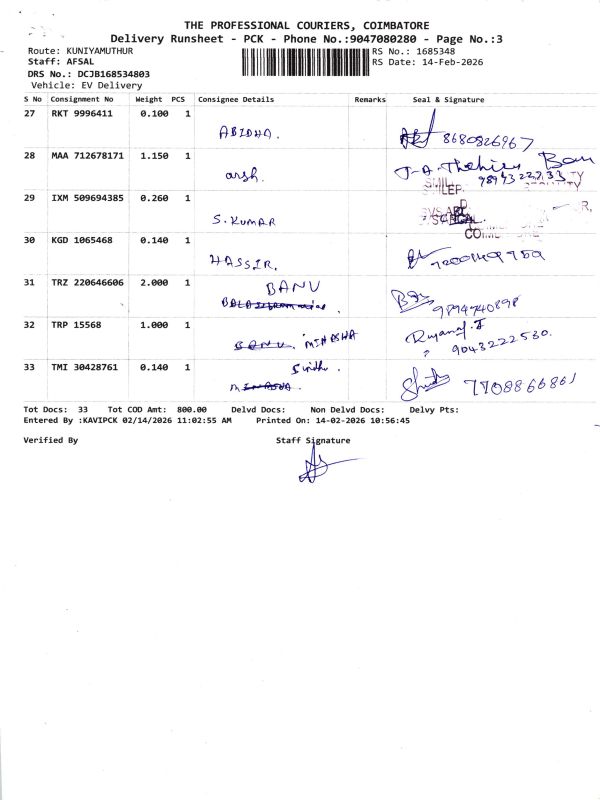 THE PROFESSIONAL COURIERS, COIMBATORE
Delivery Runsheet - PCK - Phone No.:9047080280 - Page No.:3
Route: KUNIYAMUTHUR RS No.: 1685348
Staff: AFSAL RS Date: 14-Feb-2026
DRS No.: DCJB168534803
Vehicle: EV Delivery
S No Consignment No Weight PCS Consignee Details Remarks Seal & Signature
27 RKT 9996411 0.100 1
ABIDHA. 8680826967
28 MAA 712678171 1.150 1
arsh.
29 IXM 509694385 0.260 1
S.KUMAR
30 KGD 1065468 0.140 1
HASSIR.
31 TRZ 220646606 2.000 1 BANU
9894740898
32 TRP 15568 1.000 1
BANU MINASHA
9043222530.
33 TMI 30428761 0.140 1 Sindhu.
MINASHA 7708866861
Tot Docs: 33 Tot COD Amt: 800.00 Delvd Docs: Non Delvd Docs: Delvy Pts:
Entered By :KAVIPCK 02/14/2026 11:02:55 AM Printed On: 14-02-2026 10:56:45
Verified By Staff Signature